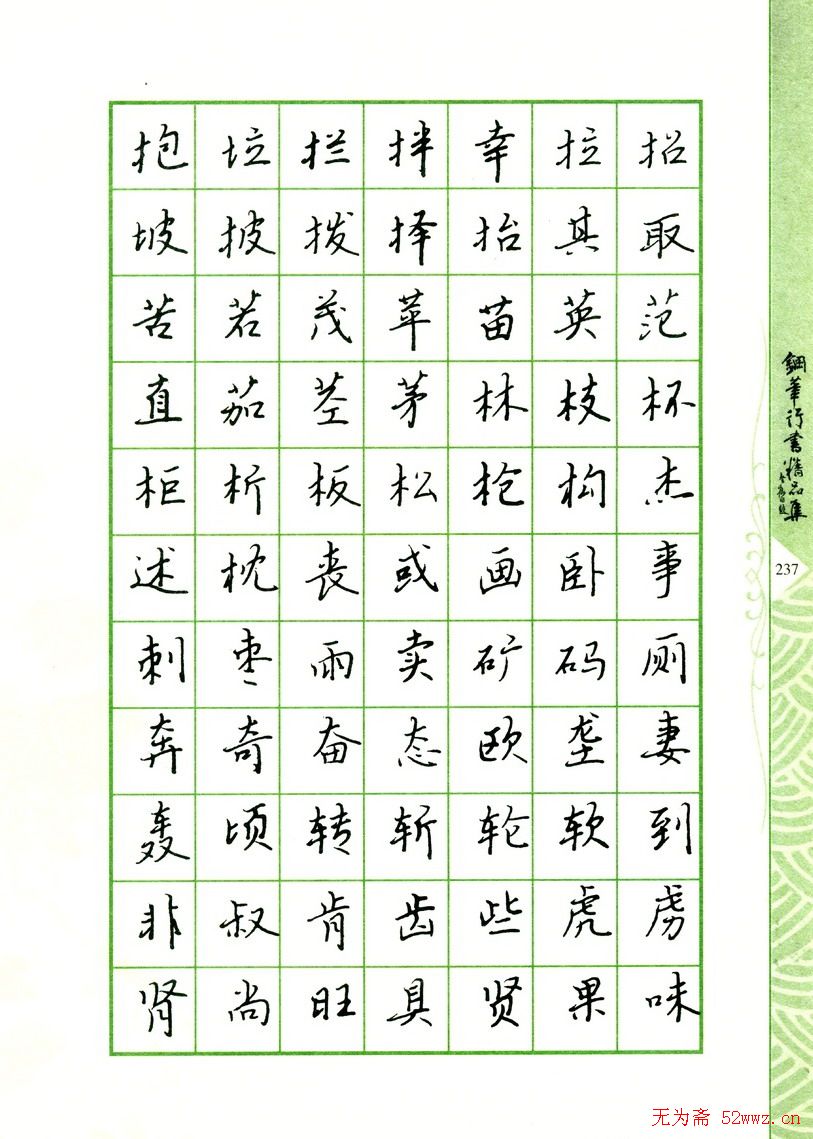 抱 垃 拦 拌 幸 拉 招
坡 披 拨 择 抬 其 取
苦 若 茂 苹 苗 英 范
直 茄 茎 茅 林 枝 杯
柜 析 板 松 枪 构 杰
述 枕 丧 或 画 卧 事
刺 枣 雨 卖 矿 码 厕
奔 奇 奋 态 欧 垄 妻
轰 顷 转 斩 轮 软 到
非 叔 肯 齿 些 虎 虏
肾 尚 旺 具 贤 果 味
鋼筆行書精品集
237
无为斋 52wwz.cn